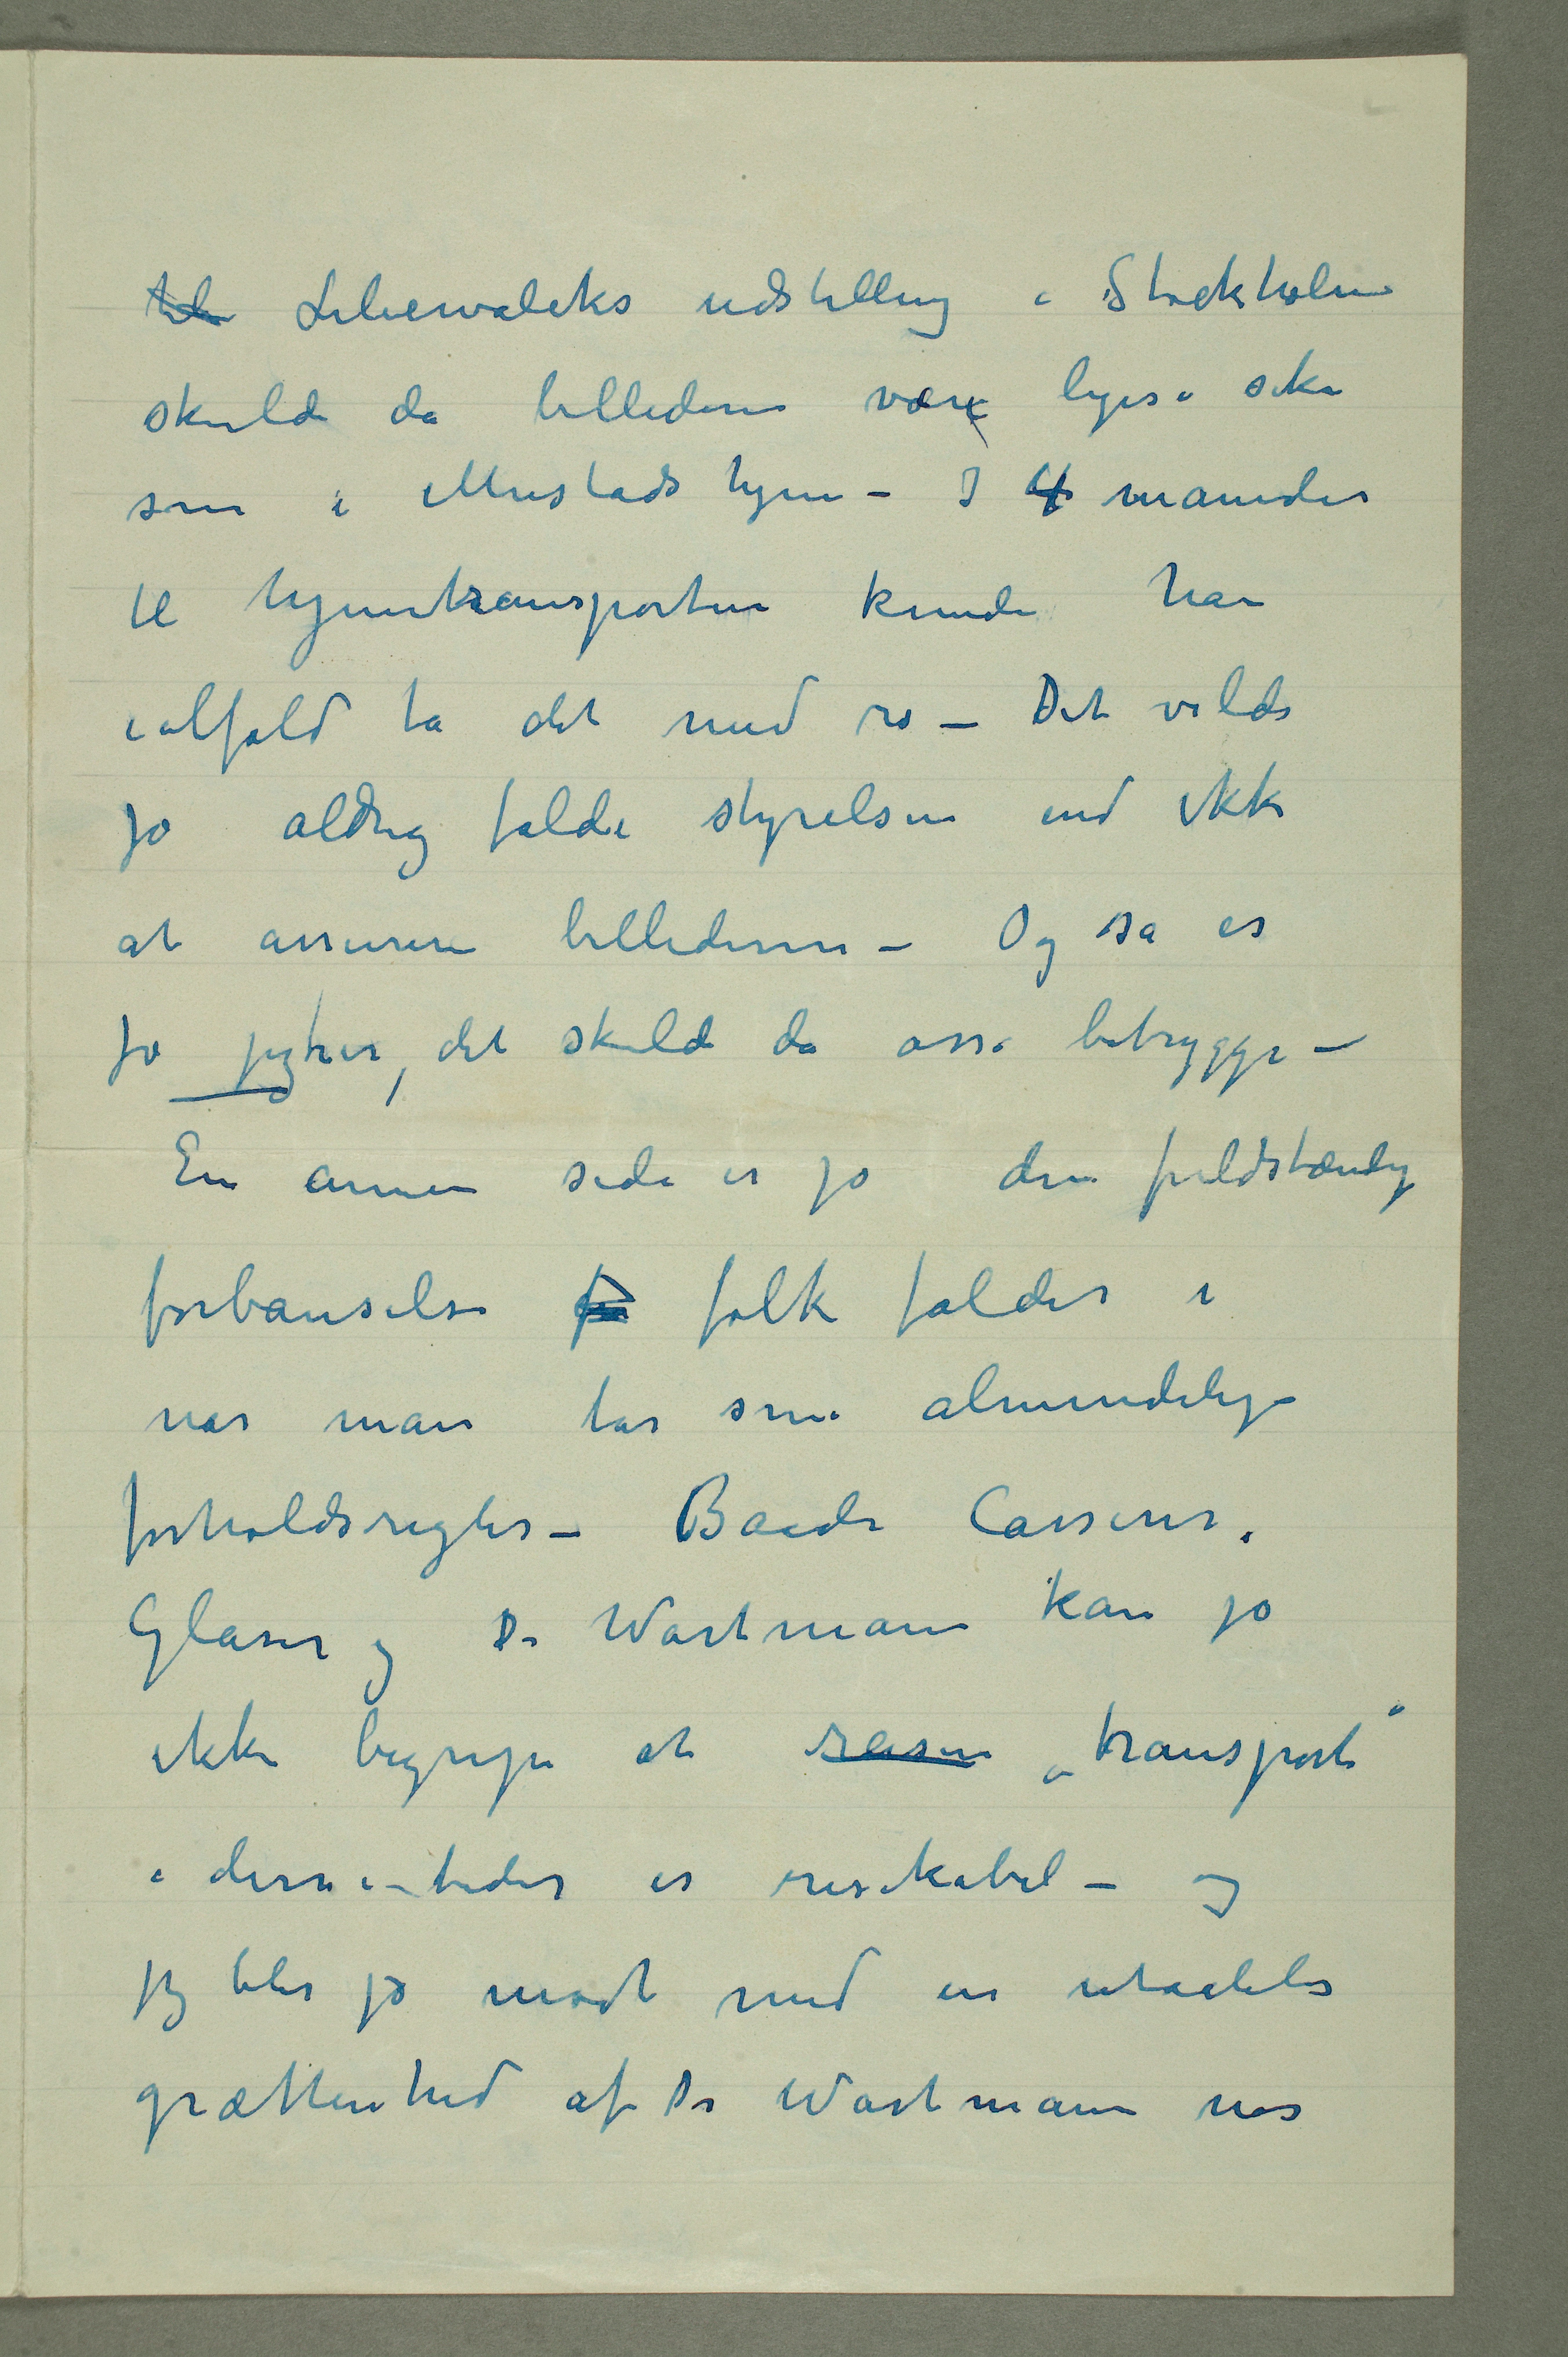 til Liliewalcks udstilling i Stockholm
skulde da billederne være ligeså sikre
som i Mustads hjem – I 4 måneder
til hjemtransporten kunde han
ialfald ta det med ro – Det vilde
jo aldrig falde styrelsen ind ikke
at assurere billederne – Og så er
jo jeg her, det skulde da osså betrygge –
En annen side er jo den fuldstændige
forbauselse folk falder i
når man tar små almindelige
forholdsregler – Baade Cassirer,
Glaser og Dr Wartmann kan jo
ikke begripe at reisen „transport"
i disse tider er risikabel – og
jeg blir jo mødt med en utaalelig
grættenhed af Dr Wartmann når